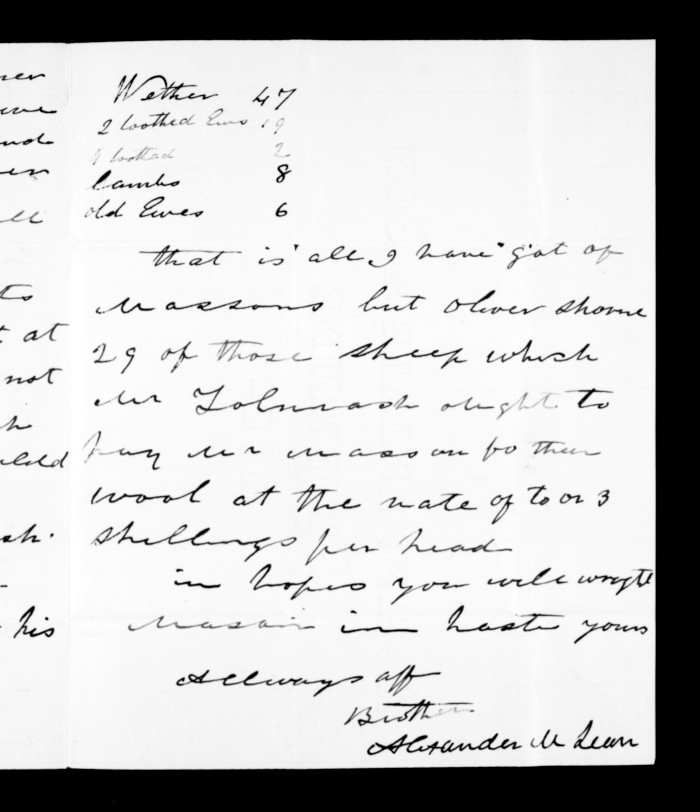 Wether 47
2 toothed Ews 19
toothad 2
lambs 8
old Ewes 6
that is all I have got of
Massons but Oliver shorne
29 of those sheep which
Mr Tolmash ought to
pay Mr Masson fo their
wool at the rate of to or 3
shellings per head
in hopes you will wryte
Masoin in haste yours
Allways aff
Brother
Alexander McLean
ts
t at
not
his